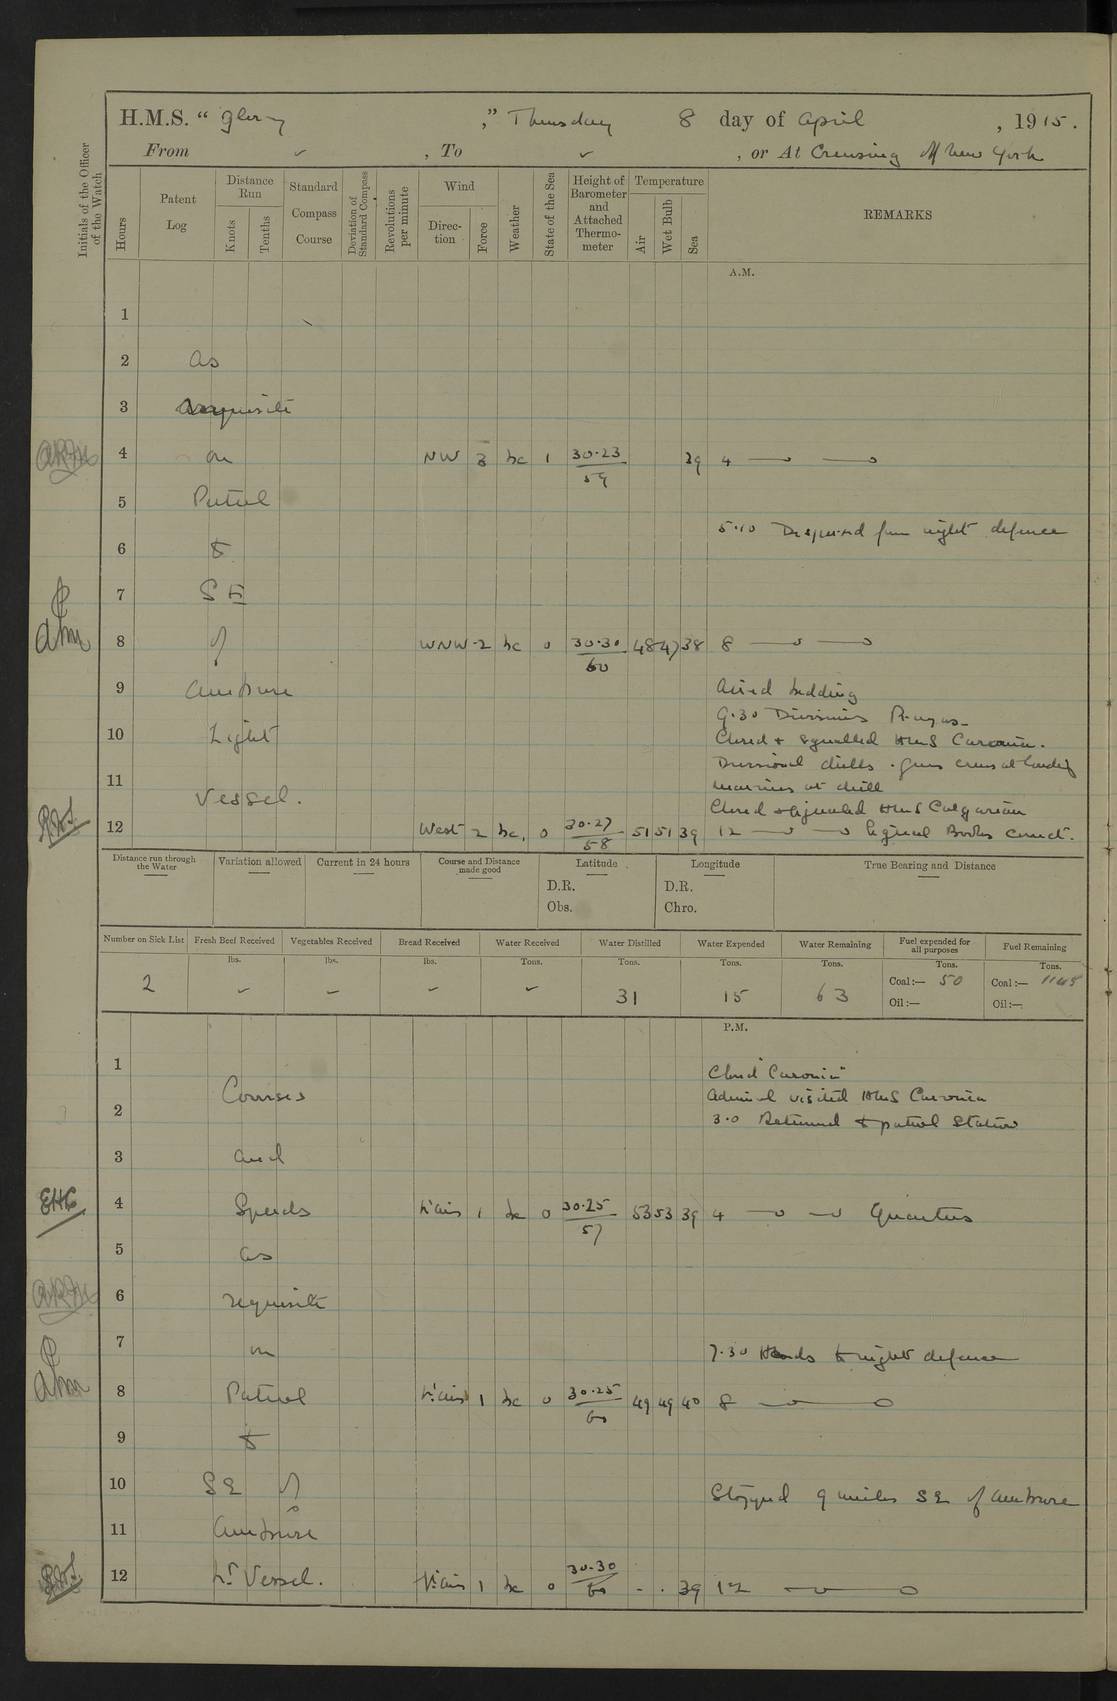 H.M.S. “ Glory ,” Thursday 8 day of April , 1915.
From ✓ , To ✓ , or At Cruising off New York
Initials of the Officer of the Watch
Hours
Patent Log
Distance Run
Knots
Tenths
Standard Compass Course
Deviation of Standard Compass
Revolutions per minute
Wind
Direction
Force
Weather
State of the Sea
Height of Barometer and Attached Thermometer
Temperature
Air
Wet Bulb
Sea
REMARKS
A.M.
1
2 As
3 requisite
4 on NW 3 bc 1 30.23 59 39 4
5 Patrol
5.10 Dispersed from night defence
6 to
7 SE
8 of WNW 2 bc 0 30.30 60 48 47 38 8
9 Ambrose Aired bedding
9.30 Divisions Prayers
10 Light Closed & signalled HMS Caronia.
Divisional drills. guns crews at loading
11 marines at drill
Vessel. Closed & signalled HMS Calgarian
12 West 2 bc. 0 30.27 58 51 51 39 12 Signal Books correct.
Distance run through the Water
Variation allowed
Current in 24 hours
Course and Distance made good
Latitude
D.R.
Obs.
Longitude
D.R.
Chro.
True Bearing and Distance
Number on Sick List
2
Fresh Beef Received
lbs.
✓
Vegetables Received
lbs.
✓
Bread Received
lbs.
✓
Water Received
Tons.
✓
Water Distilled
Tons.
31
Water Expended
Tons.
15
Water Remaining
Tons.
63
Fuel expended for all purposes
Tons.
Coal:— 50
Oil:—
Fuel Remaining
Tons.
Coal:— 1148
Oil:—
P.M.
1 Closed "Caronia"
Courses Admiral visited HMS Caronia
2 3.0 Returned to patrol Station
3 and
EHC
4 Speeds Lt airs 1 bc 0 30.25 57 53 53 39 4 Quarters
5 as
6 requisite
7 on 7.30 Hands to night defence
8 Patrol Lt airs 1 bc 0 30.25 60 49 49 40 8
9 to
10 SE of Stopped 9 miles SE of Ambrose
11 Ambrose
12 Lt Vessel. Lt airs 1 bc 0 30.30 60 - . 39 12